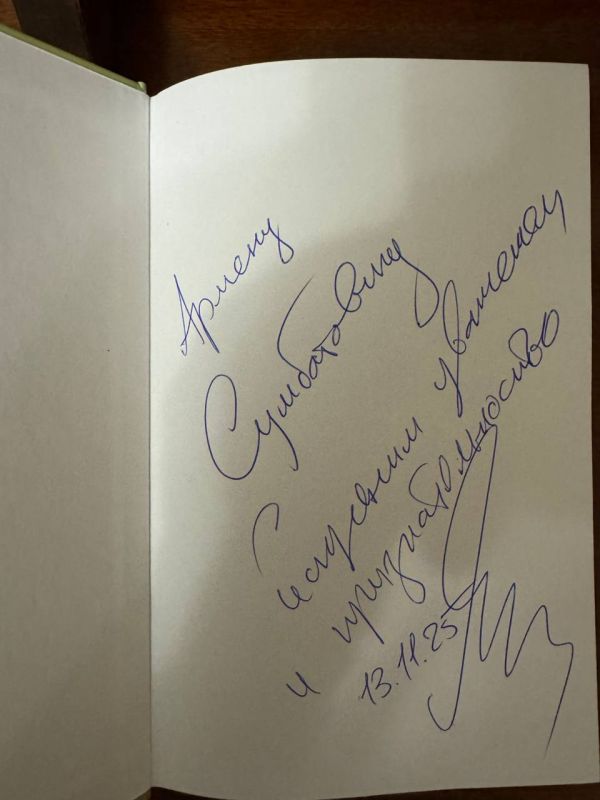 Армену
Сумбатовичу
С искренним уважением
и признательностью
13.11.25